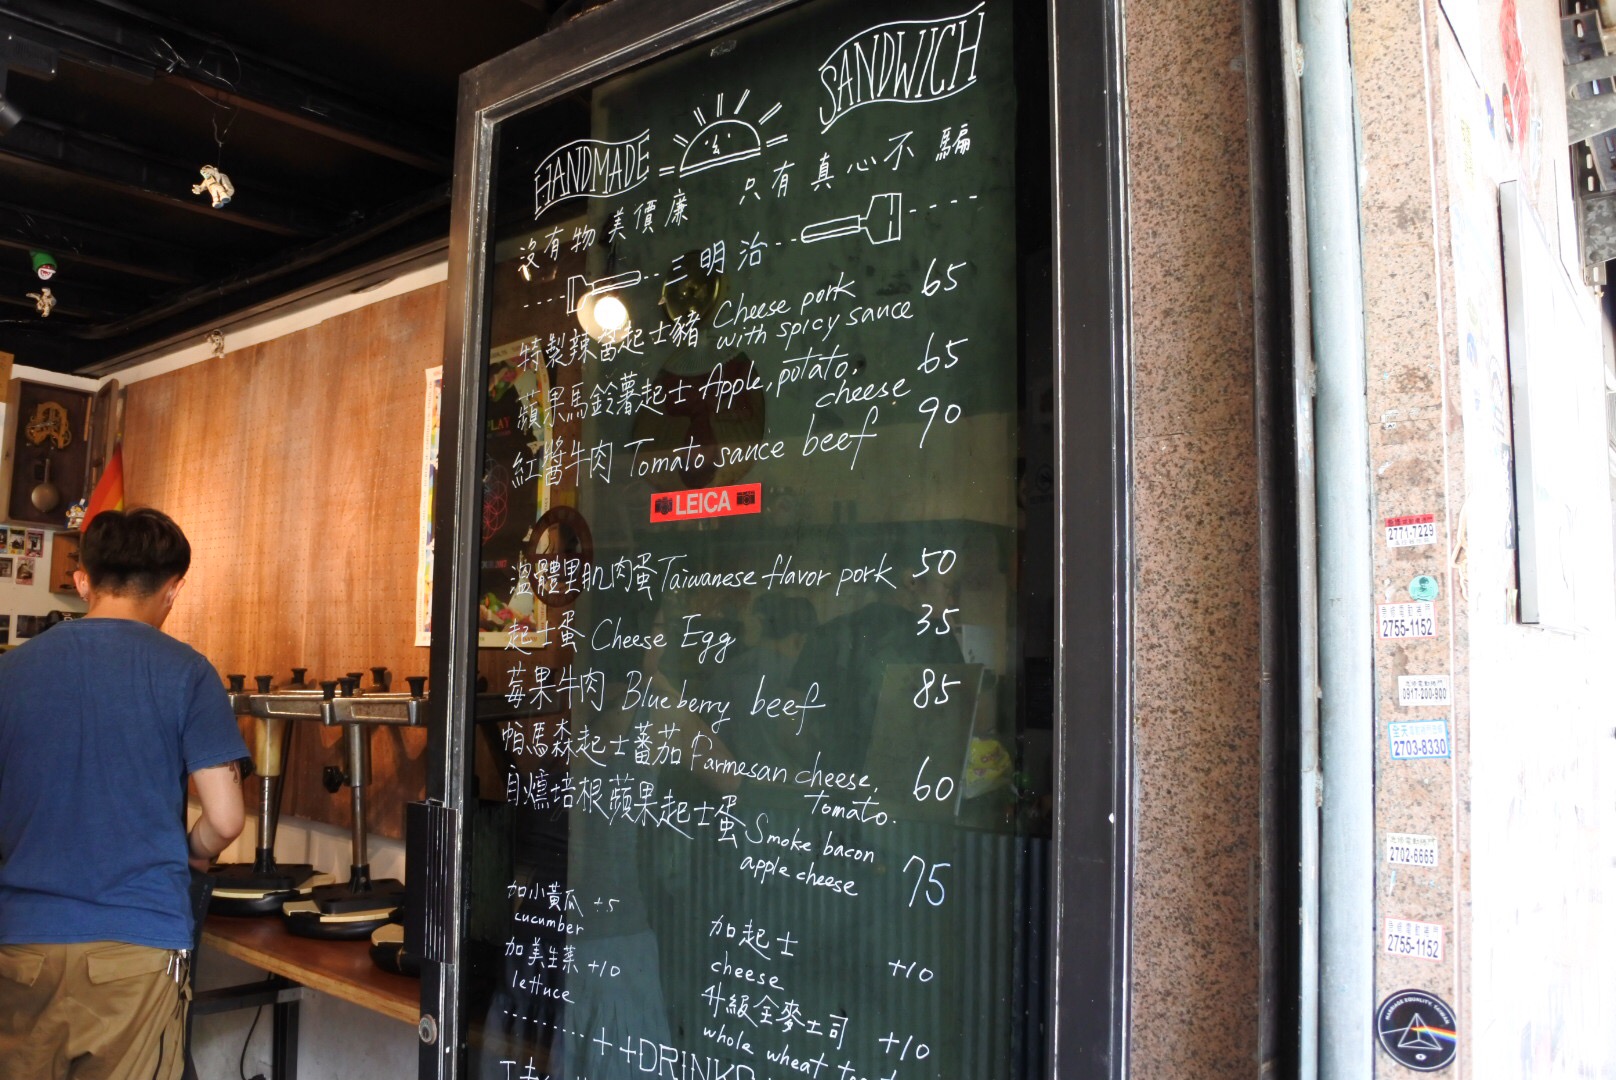 HANDMADE SANDWICH
沒有物美價廉 只有真心不騙
三明治
特製辣醬起士豬 Cheese pork with spicy sauce 65
蘋果馬鈴薯起士 Apple, potato, cheese 65
紅醬牛肉 Tomato sauce beef 90
LEICA
溫體里肌肉蛋 Taiwanese flavor pork 50
起士蛋 Cheese Egg 35
莓果牛肉 Blueberry beef 85
帕馬森起士蕃茄 Parmesan cheese, tomato. 60
自燻培根蘋果起士蛋 Smoke bacon apple cheese 75
加小黃瓜 +5
cucumber
加美生菜 +10
lettuce
加起士 +10
cheese
升級全麥土司 +10
whole wheat
++DRINKS
2771-7229
2755-1152
0917-200-900
2703-8330
2702-6665
2755-1152